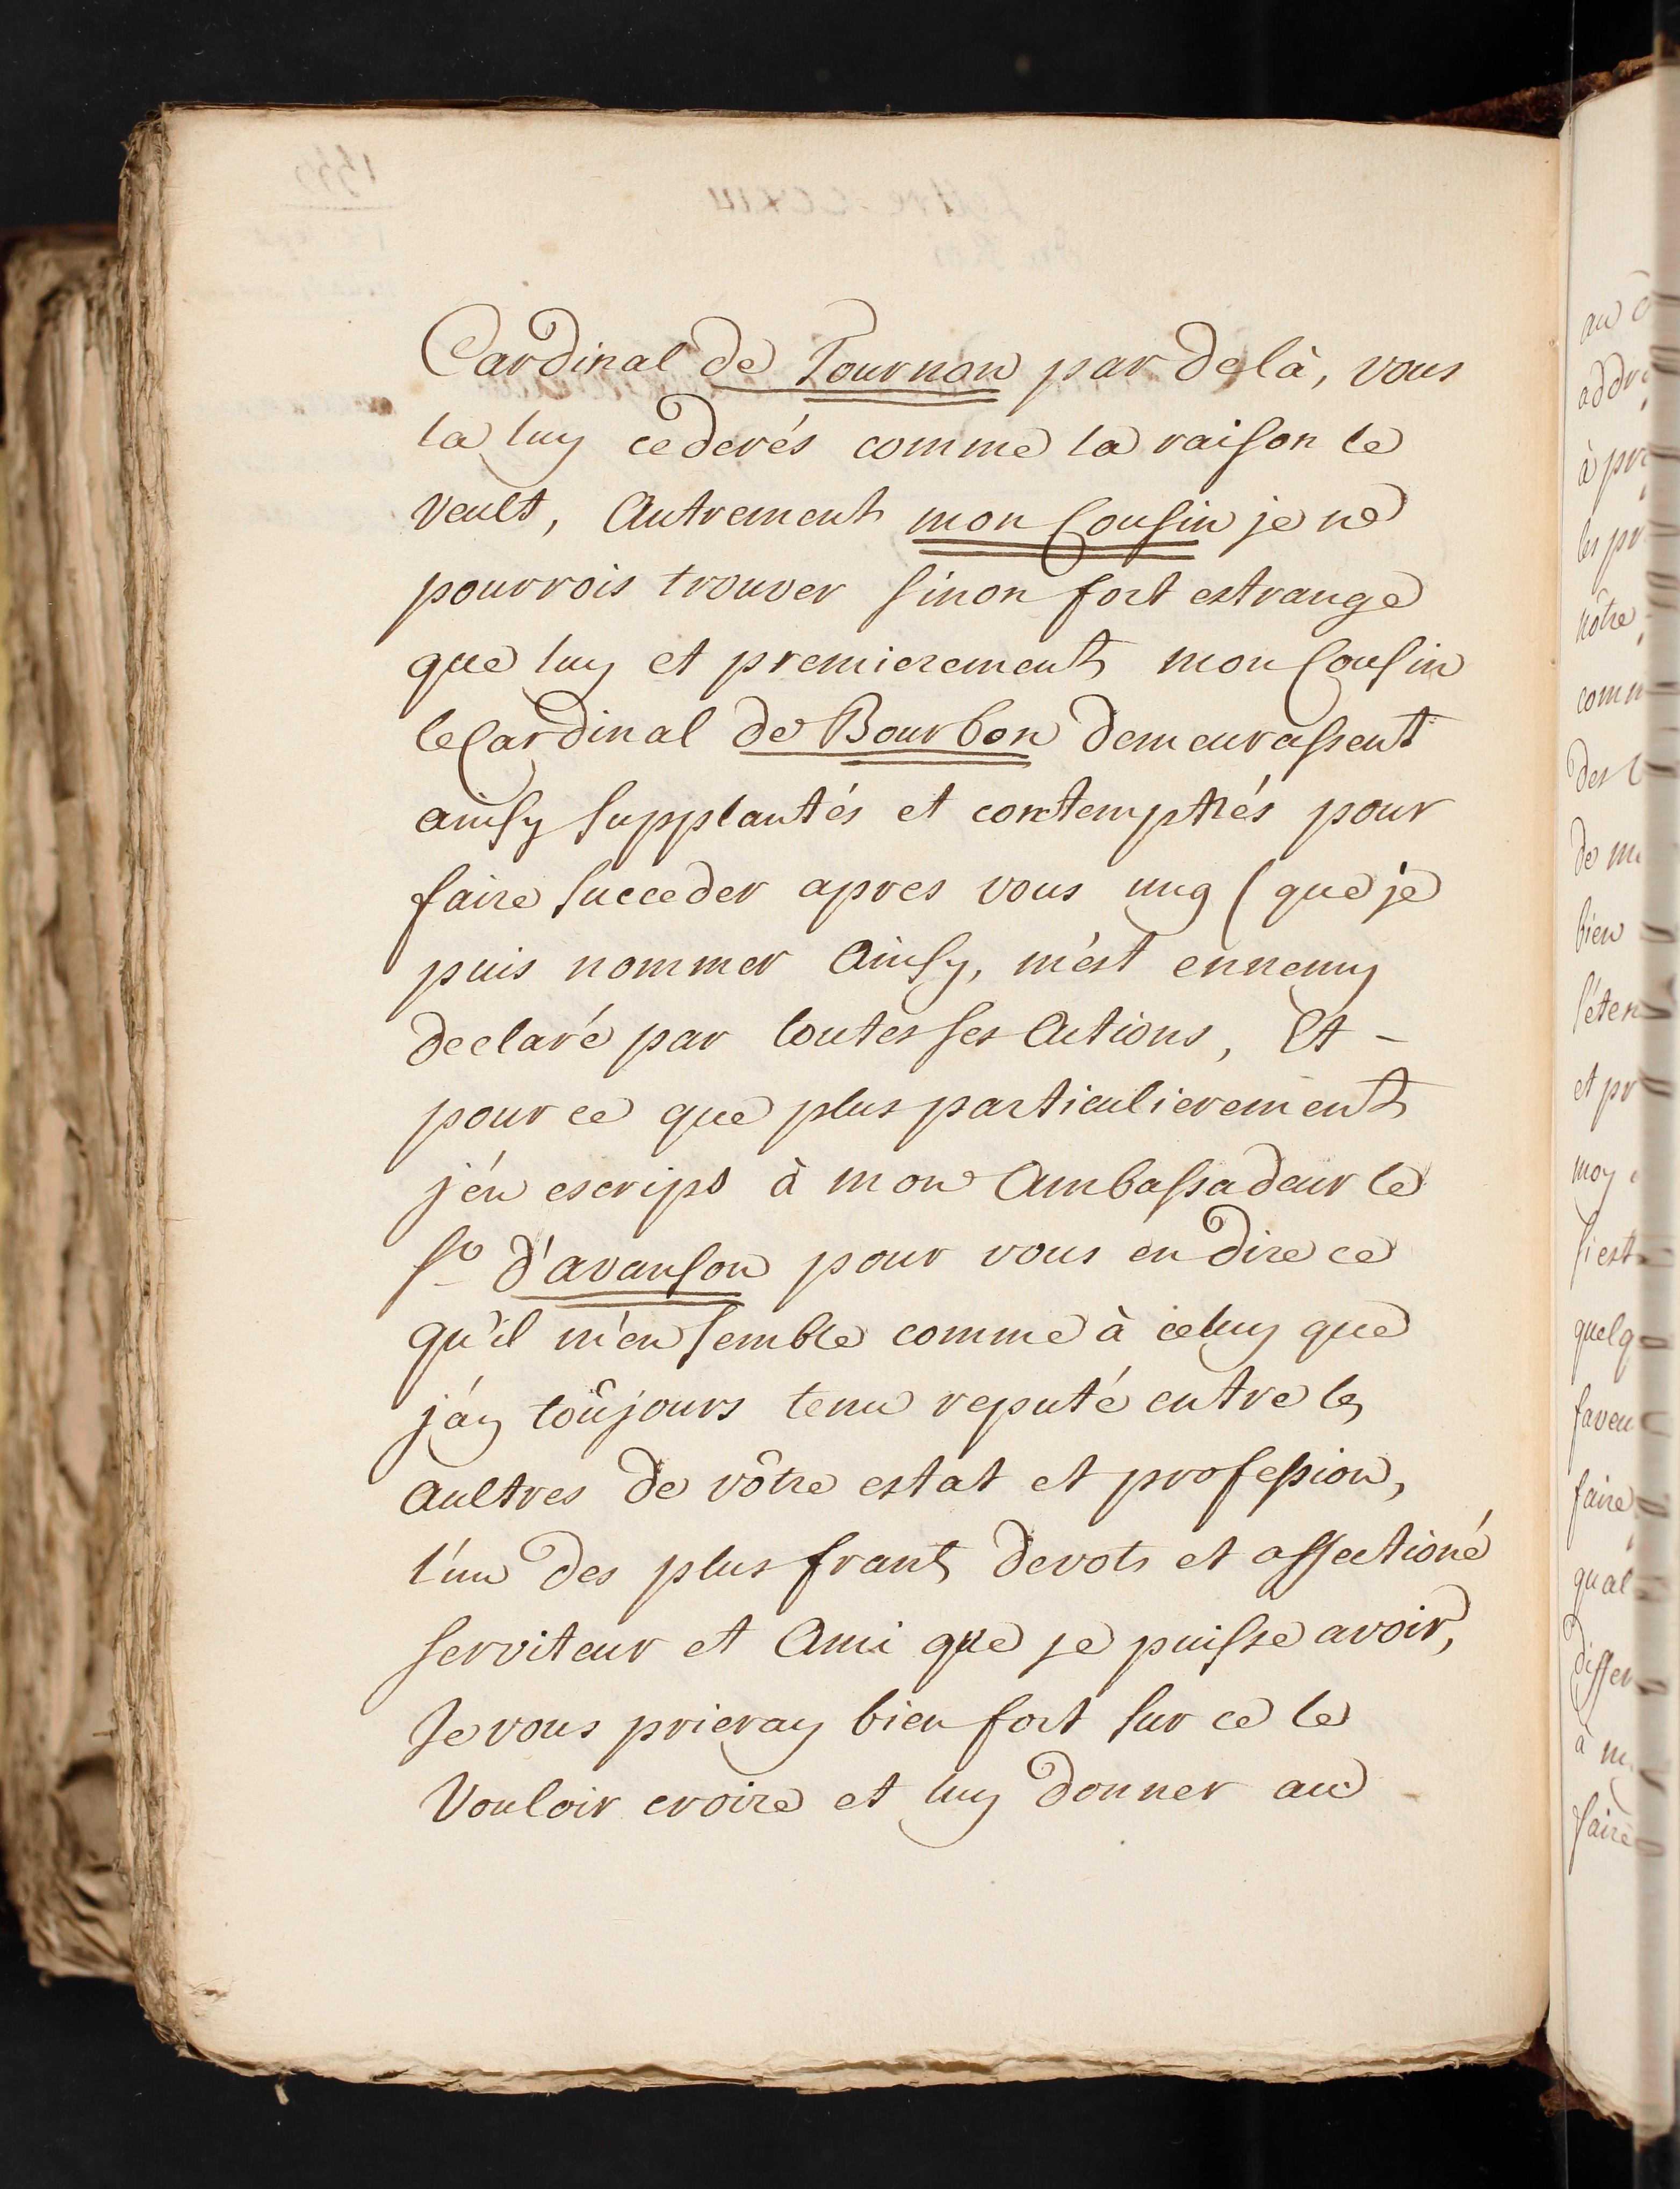 Cardinal de Tournon par delà, vous
la luy cederés comme la raison le
veult, Autrement mon Cousin je ne
pourrois trouver sinon fort estrange
que luy et premierement mon Cousin
le Cardinal de Bourbon demeurassent
ainsy supplantés et contemptnés pour
faire succeder apres vous ung (que je
puis nommer Ainsy, m'est ennemy
declaré par toutes ses Actions, Et -
pour ce que plus particulierement
j'en escrips à mon Ambassadeur le
Sr d'avanson pour vous en dire ce
qu'il m'en semble comme à celuy que
j'ay toûjours tenu reputé entre les
aultres de vôtre estat et profession,
l'un des plus frants devots et affectioné
serviteur et Ami que je puisse avoir,
Je vous prieray bien fort sur ce le
Vouloir croire et luy donner au
au
addr
à pr
les pr
nôtre
comm
des
de m
bien
s'éten
et pr
moy
si est
quelq
faveu
faire
qual
differ
à m
faire